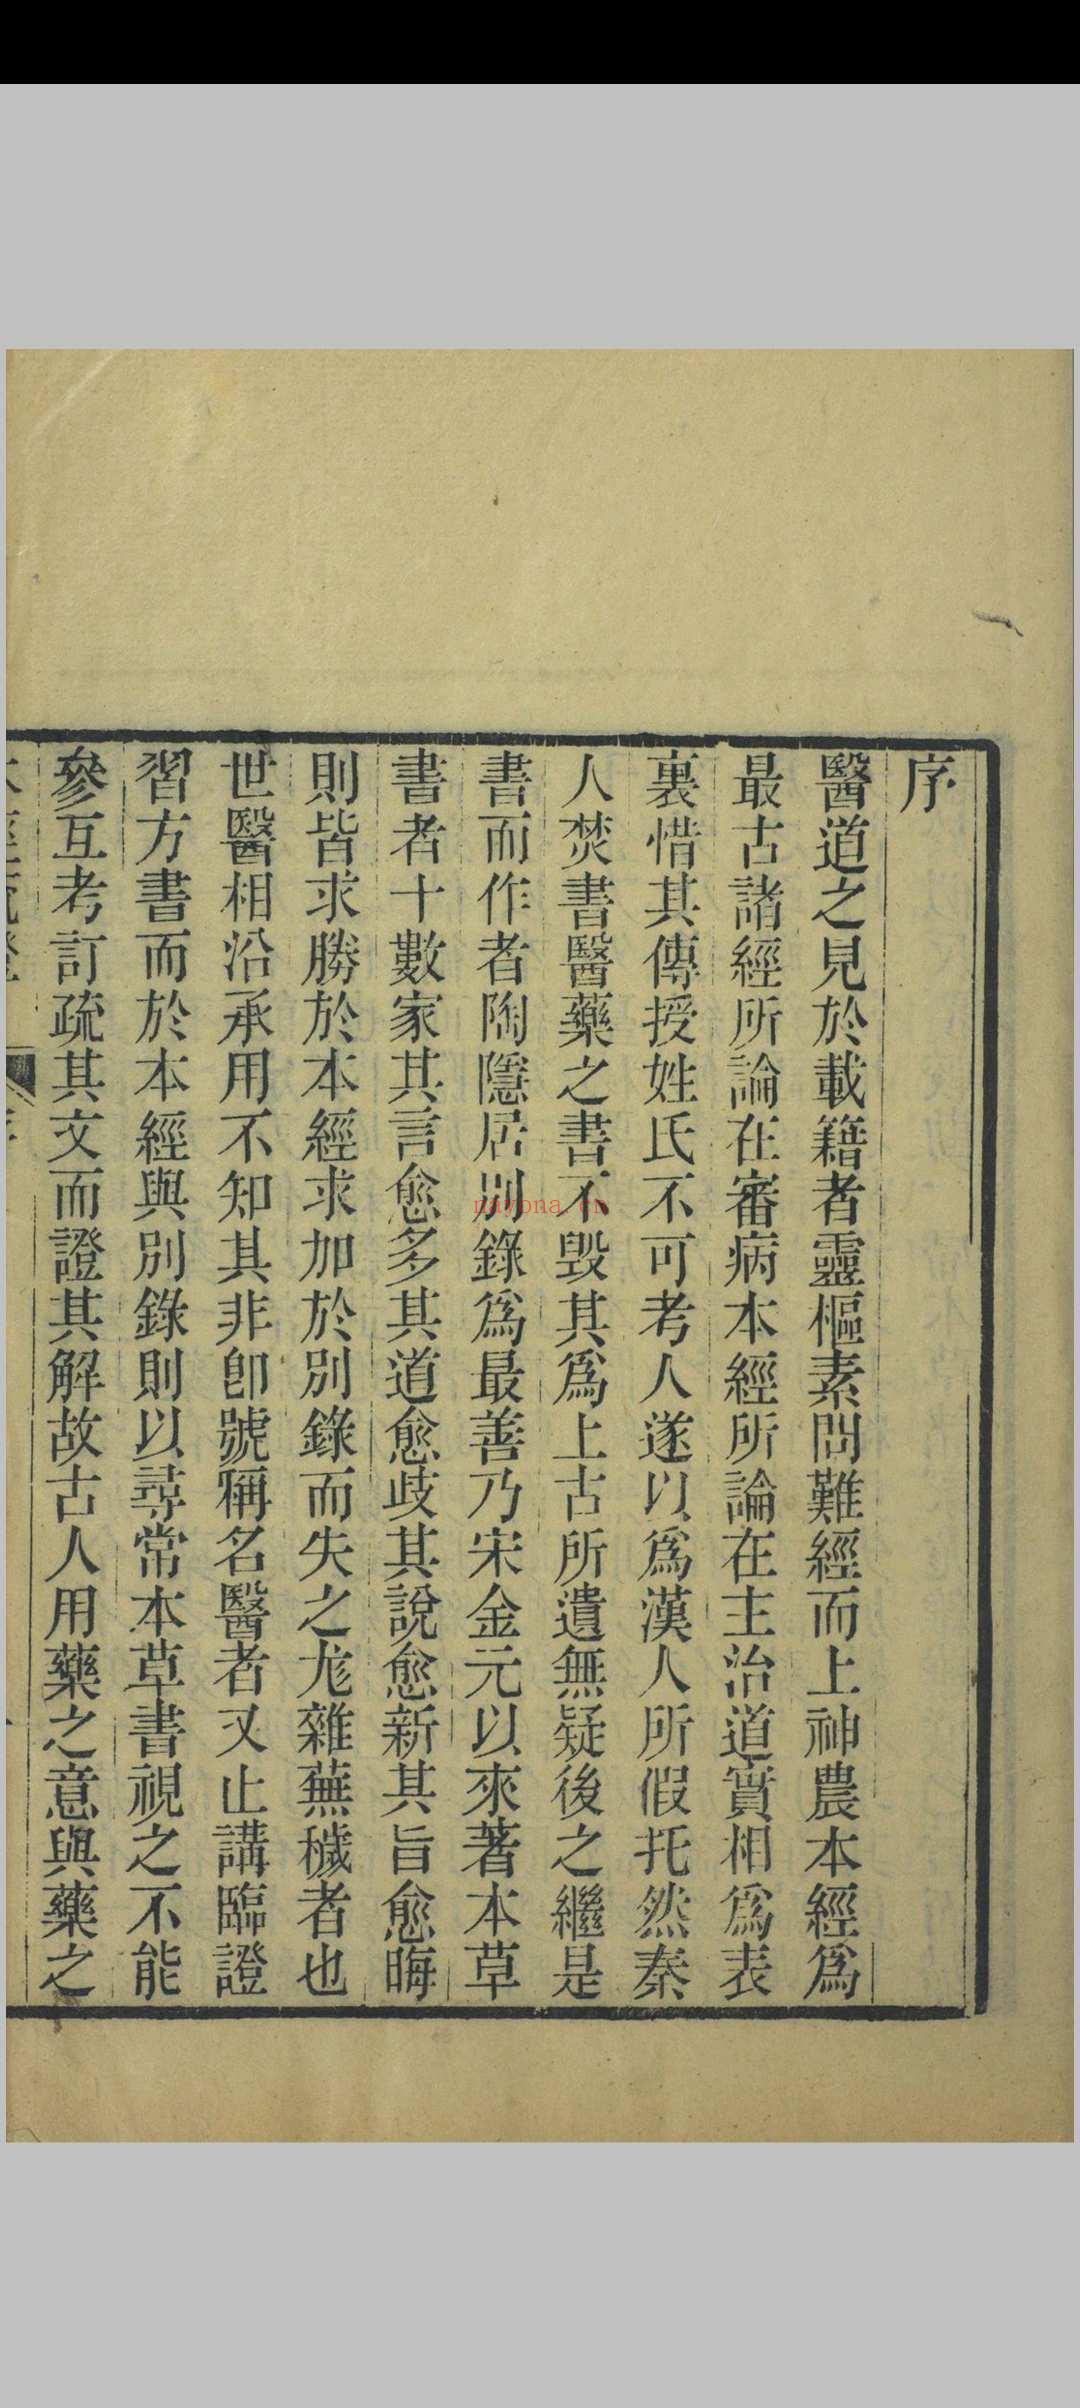 序
醫道之見於載籍者靈樞素問難經而上神農本經爲
最古諸經所論在審病本經所論在主治道實相爲表
裏惜其傳授姓氏不可考人遂以爲漢人所假托然秦
人焚書醫藥之書不毁其爲上古所遺無疑後之繼是
書而作者陶隱居别錄爲最善乃宋金元以來著本草
書者十數家其言愈多其道愈歧其說愈新其旨愈晦
則皆求勝於本經求加於別錄而失之尨雜蕪穢者也
世醫相沿承用不知其非卽號稱名醫者又止講臨證
習方書而於本經與別錄則以尋常本草書視之不能
參互考訂疏其文而證其解故古人用藥之意與藥之
nayona.cn